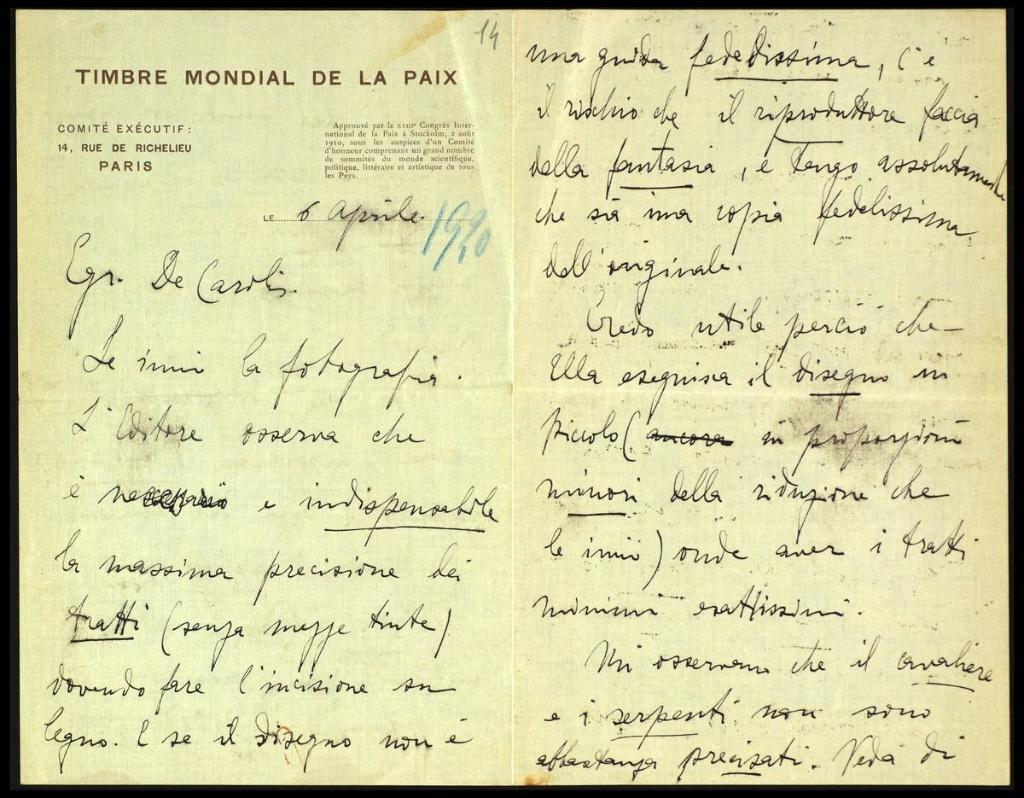 14
TIMBRE MONDIAL DE LA PAIX
COMITÉ EXÉCUTIF:
14, RUE DE RICHELIEU
PARIS
Approuvé par le XVIIIᵉ Congrès Inter-
national de la Paix à Stockolm, 2 août
1910, sous les auspices d'un Comité
d'honneur comprenant un grand nombre
de sommités du monde scientifique,
politique, littéraire et artistique de tous
les Pays.
LE 6 Aprile 1920
Egr. De Carolis.
Le invii la fotografia.
L'Editore osserva che
è necessario e indispensabile
la massima precisione dei
tratti (senza mezze tinte)
dovendo fare l'incisione su
legno. E se il disegno non è
una guida fedelissima, c'è
il rischio che il riproduttore faccia
della fantasia, e tengo assolutamente
che sia una copia fedelissima
dell'originale.
Credo utile perciò che
Ella eseguisca il disegno in
piccolo (ancora in proporzioni
minori della riduzione che
le invii) onde aver i tratti
minimi esattissimi.
Mi osservano che il cavaliere
e i serpenti non sono
abbastanza precisati. Veda di